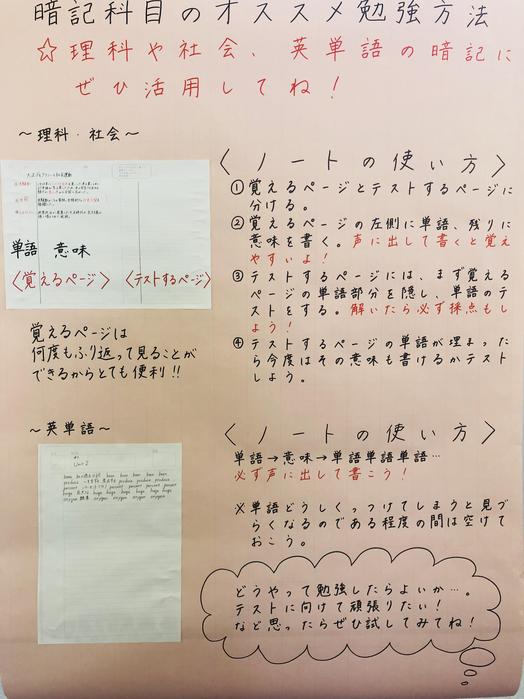 暗記科目のオススメ勉強方法
☆理科や社会、英単語の暗記に
ぜひ活用してね！
～理科・社会～
単語 意味
〈覚えるページ〉 〈テストするページ〉
覚えるページは
何度もふり返って見ることが
できるからとても便利!!
〈ノートの使い方〉
①覚えるページとテストするページに
分ける。
②覚えるページの左側に単語、残りに
意味を書く。声に出して書くと覚え
やすいよ！
③テストするページには、まず覚える
ページの単語部分を隠し、単語のテ
ストをする。解いたら必ず採点もし
よう！
④テストするページの単語が埋まった
ら今度はその意味も書けるかテスト
しよう。
～英単語～
Unit 2
〈ノートの使い方〉
単語→意味→単語単語単語…
必ず声に出して書こう！
※単語どうしくっつけてしまうと見づ
らくなるのである程度の間は空けて
おこう。
どうやって勉強したらよいか…。
テストに向けて頑張りたい！
など思ったらぜひ試してみてね！